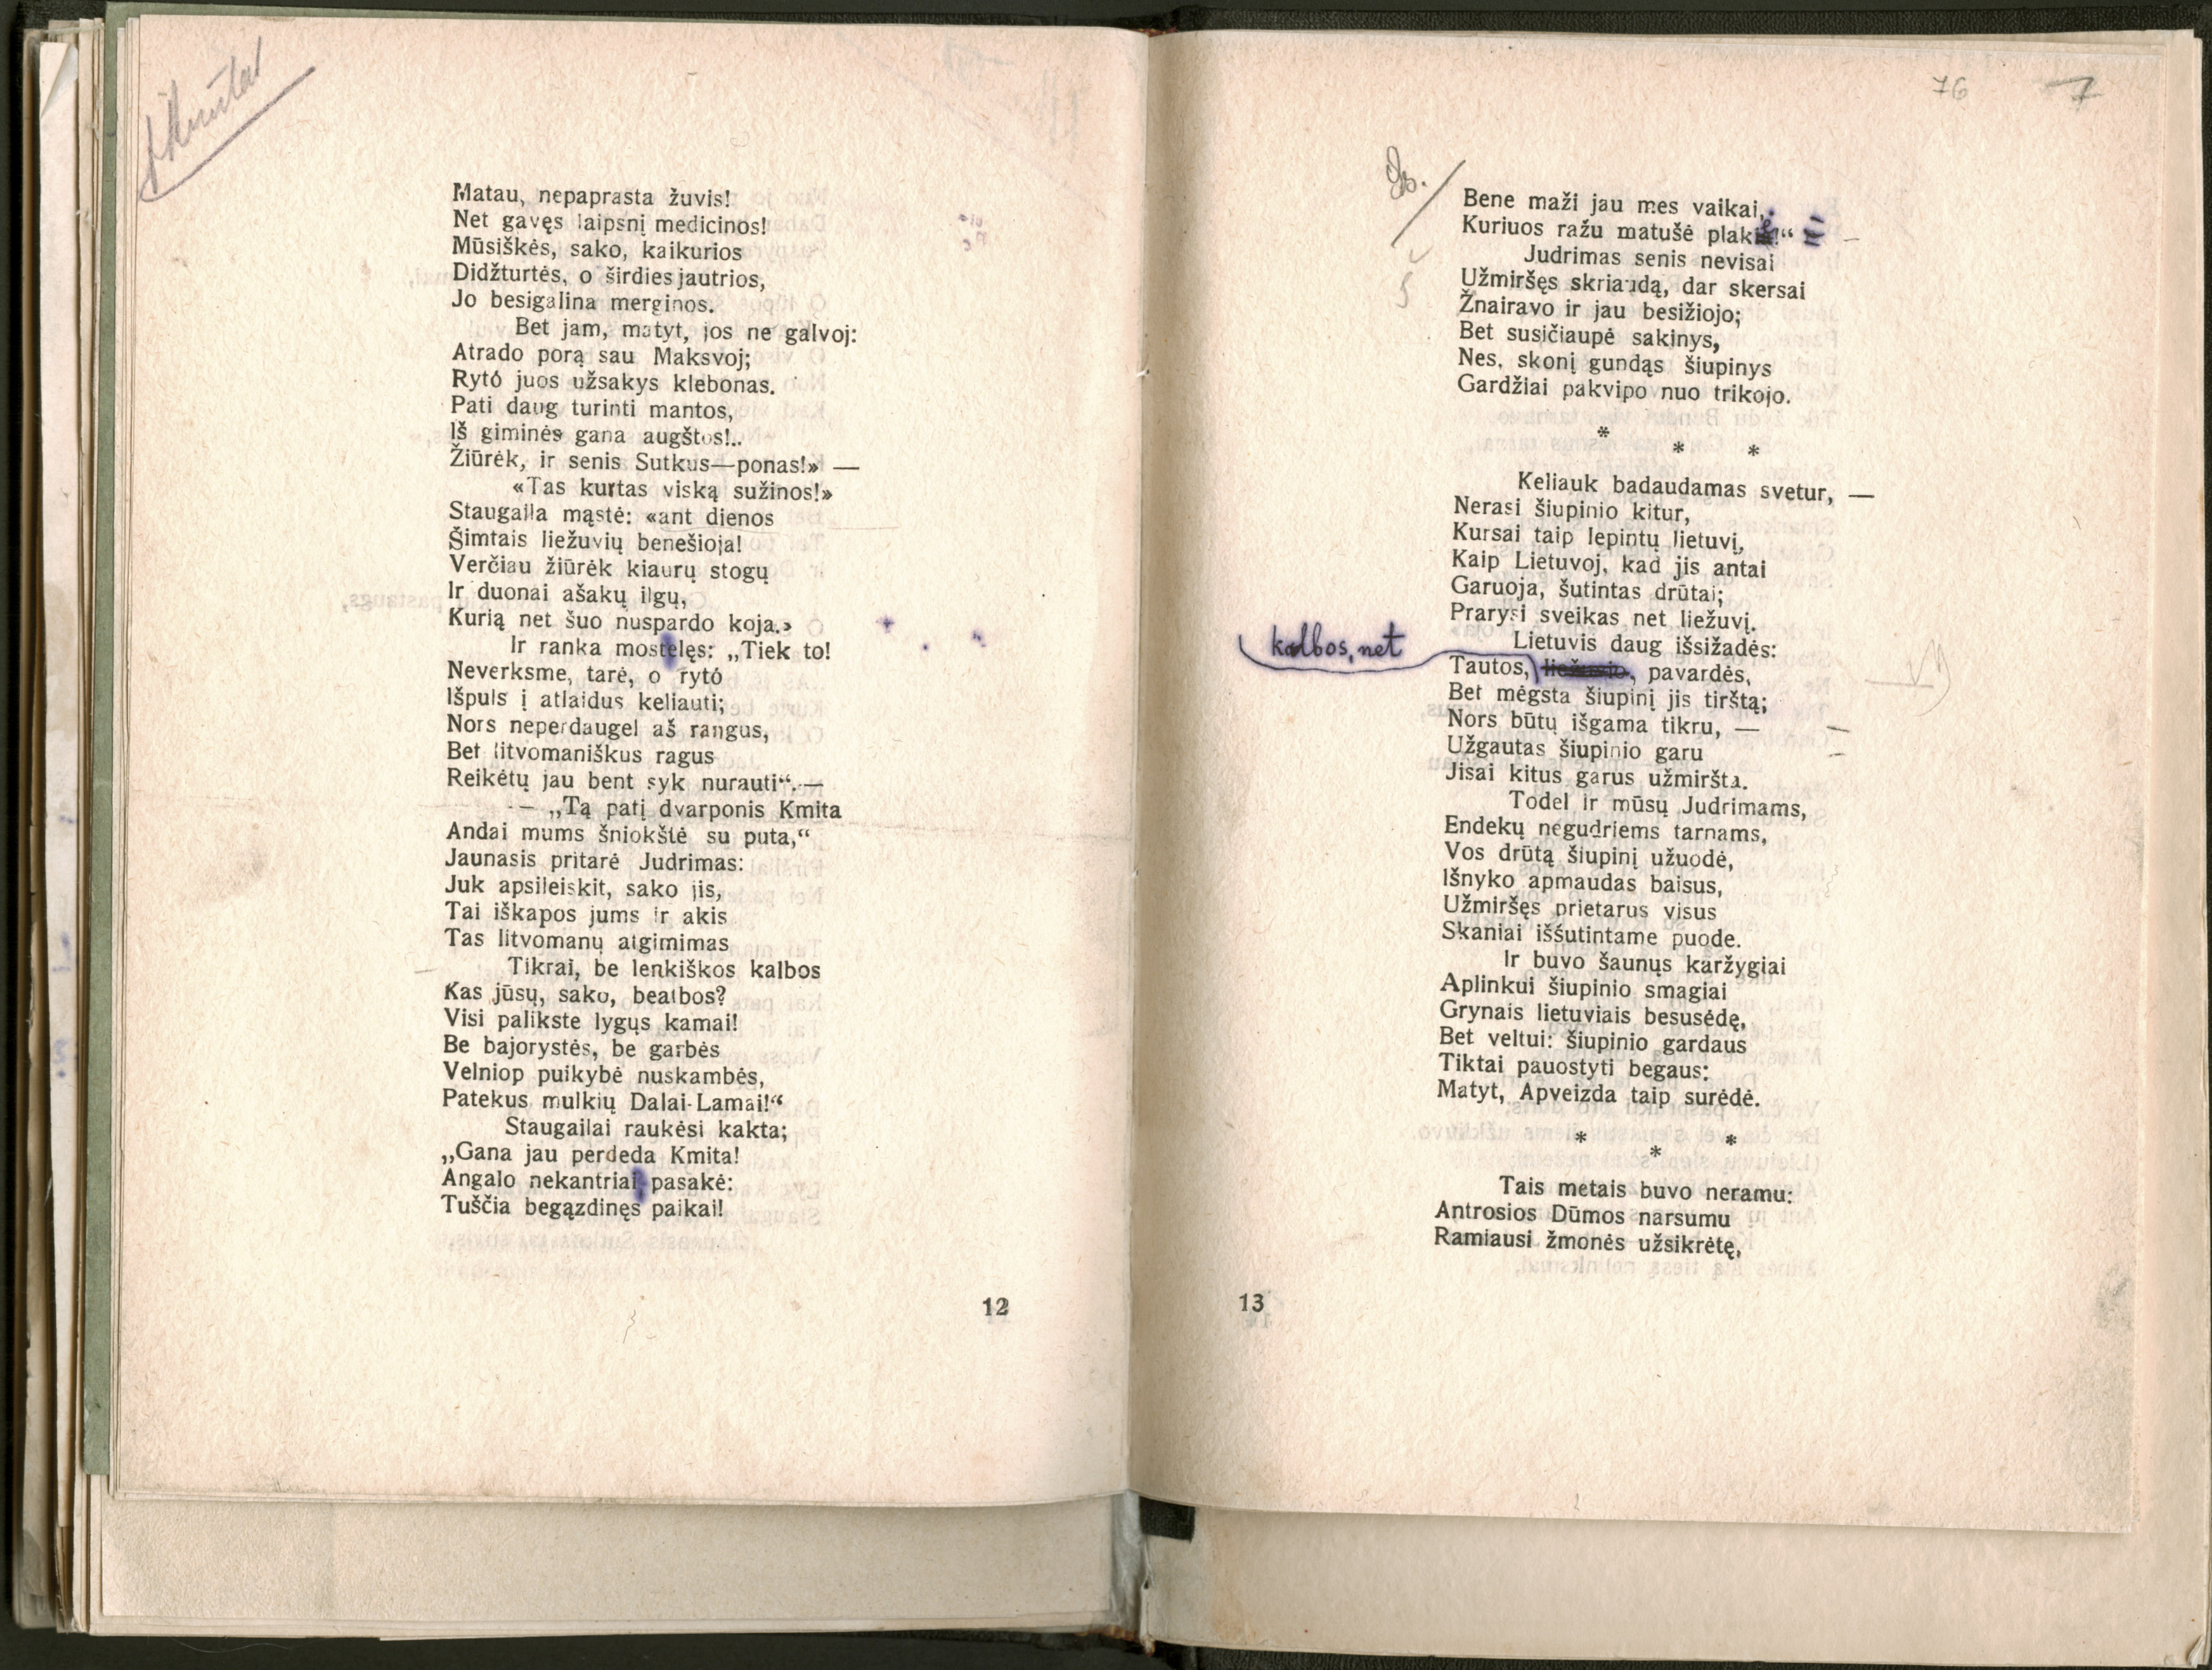 Matau, nepaprasta žuvis!
Net gavęs laipsnį medicinos!
Mūsiškės, sako, kaikurios
Didžturtės, o širdies jautrios,
Jo besigalina merginos.
Bet jam, matyt, jos ne galvoj:
Atrado porą sau Maksvoj;
Rytó juos užsakys klebonas.
Pati daug turinti mantos,
Iš giminės gana augštos!..
Žiūrėk, ir senis Sutkus—ponas!» —
«Tas kurtas viską sužinos!»
Staugaila mąstė: «ant dienos
Šimtais liežuvių benešioja!
Verčiau žiūrėk kiaurų stogų
Ir duonai ašakų ilgų,
Kurią net šuo nuspardo koja.»
Ir ranka mostelęs: „Tiek to!
Neverksme, tarė, o rytó
Išpuls į atlaidus keliauti;
Nors neperdaugel aš rangus,
Bet litvomaniškus ragus
Reikėtų jau bent syk nurauti“.—
— „Tą patį dvarponis Kmita
Andai mums šniokštė su puta,“
Jaunasis pritarė Judrimas:
Juk apsileiskit, sako jis,
Tai iškapos jums ir akis
Tas litvomanų atgimimas
Tikrai, be lenkiškos kalbos
Kas jūsų, sako, beatbos?
Visi palikste lygųs kamai!
Be bajorystės, be garbės
Velniop puikybė nuskambės,
Patekus mulkių Dalai-Lamai!“
Staugailai raukėsi kakta;
„Gana jau perdeda Kmita!
Angalo nekantriai pasakė:
Tuščia begązdinęs paikai!
12
76
7
Bene maži jau mes vaikai,
Kuriuos ražu matušė plak!“
Judrimas senis nevisai
Užmiršęs skriaudą, dar skersai
Žnairavo ir jau besižiojo;
Bet susičiaupė sakinys,
Nes, skonį gundąs šiupinys
Gardžiai pakvipo nuo trikojo.
* * *
Keliauk badaudamas svetur, —
Nerasi šiupinio kitur,
Kursai taip lepintų lietuvį,
Kaip Lietuvoj, kad jis antai
Garuoja, šutintas drūtai;
Prarysi sveikas net liežuvį.
Lietuvis daug išsižadės:
kalbos, net
Tautos, liežuvio, pavardės,
Bet mėgsta šiupinį jis tirštą;
Nors būtų išgama tikru, —
Užgautas šiupinio garu
Jisai kitus garus užmiršta.
Todel ir mūsų Judrimams,
Endekų negudriems tarnams,
Vos drūtą šiupinį užuodė,
Išnyko apmaudas baisus,
Užmiršęs prietarus visus
Skaniai iššutintame puode.
Ir buvo šaunųs karžygiai
Aplinkui šiupinio smagiai
Grynais lietuviais besusėdę,
Bet veltui: šiupinio gardaus
Tiktai pauostyti begaus:
Matyt, Apveizda taip surėdė.
* * *
Tais metais buvo neramu:
Antrosios Dūmos narsumu
Ramiausi žmonės užsikrėtę,
13